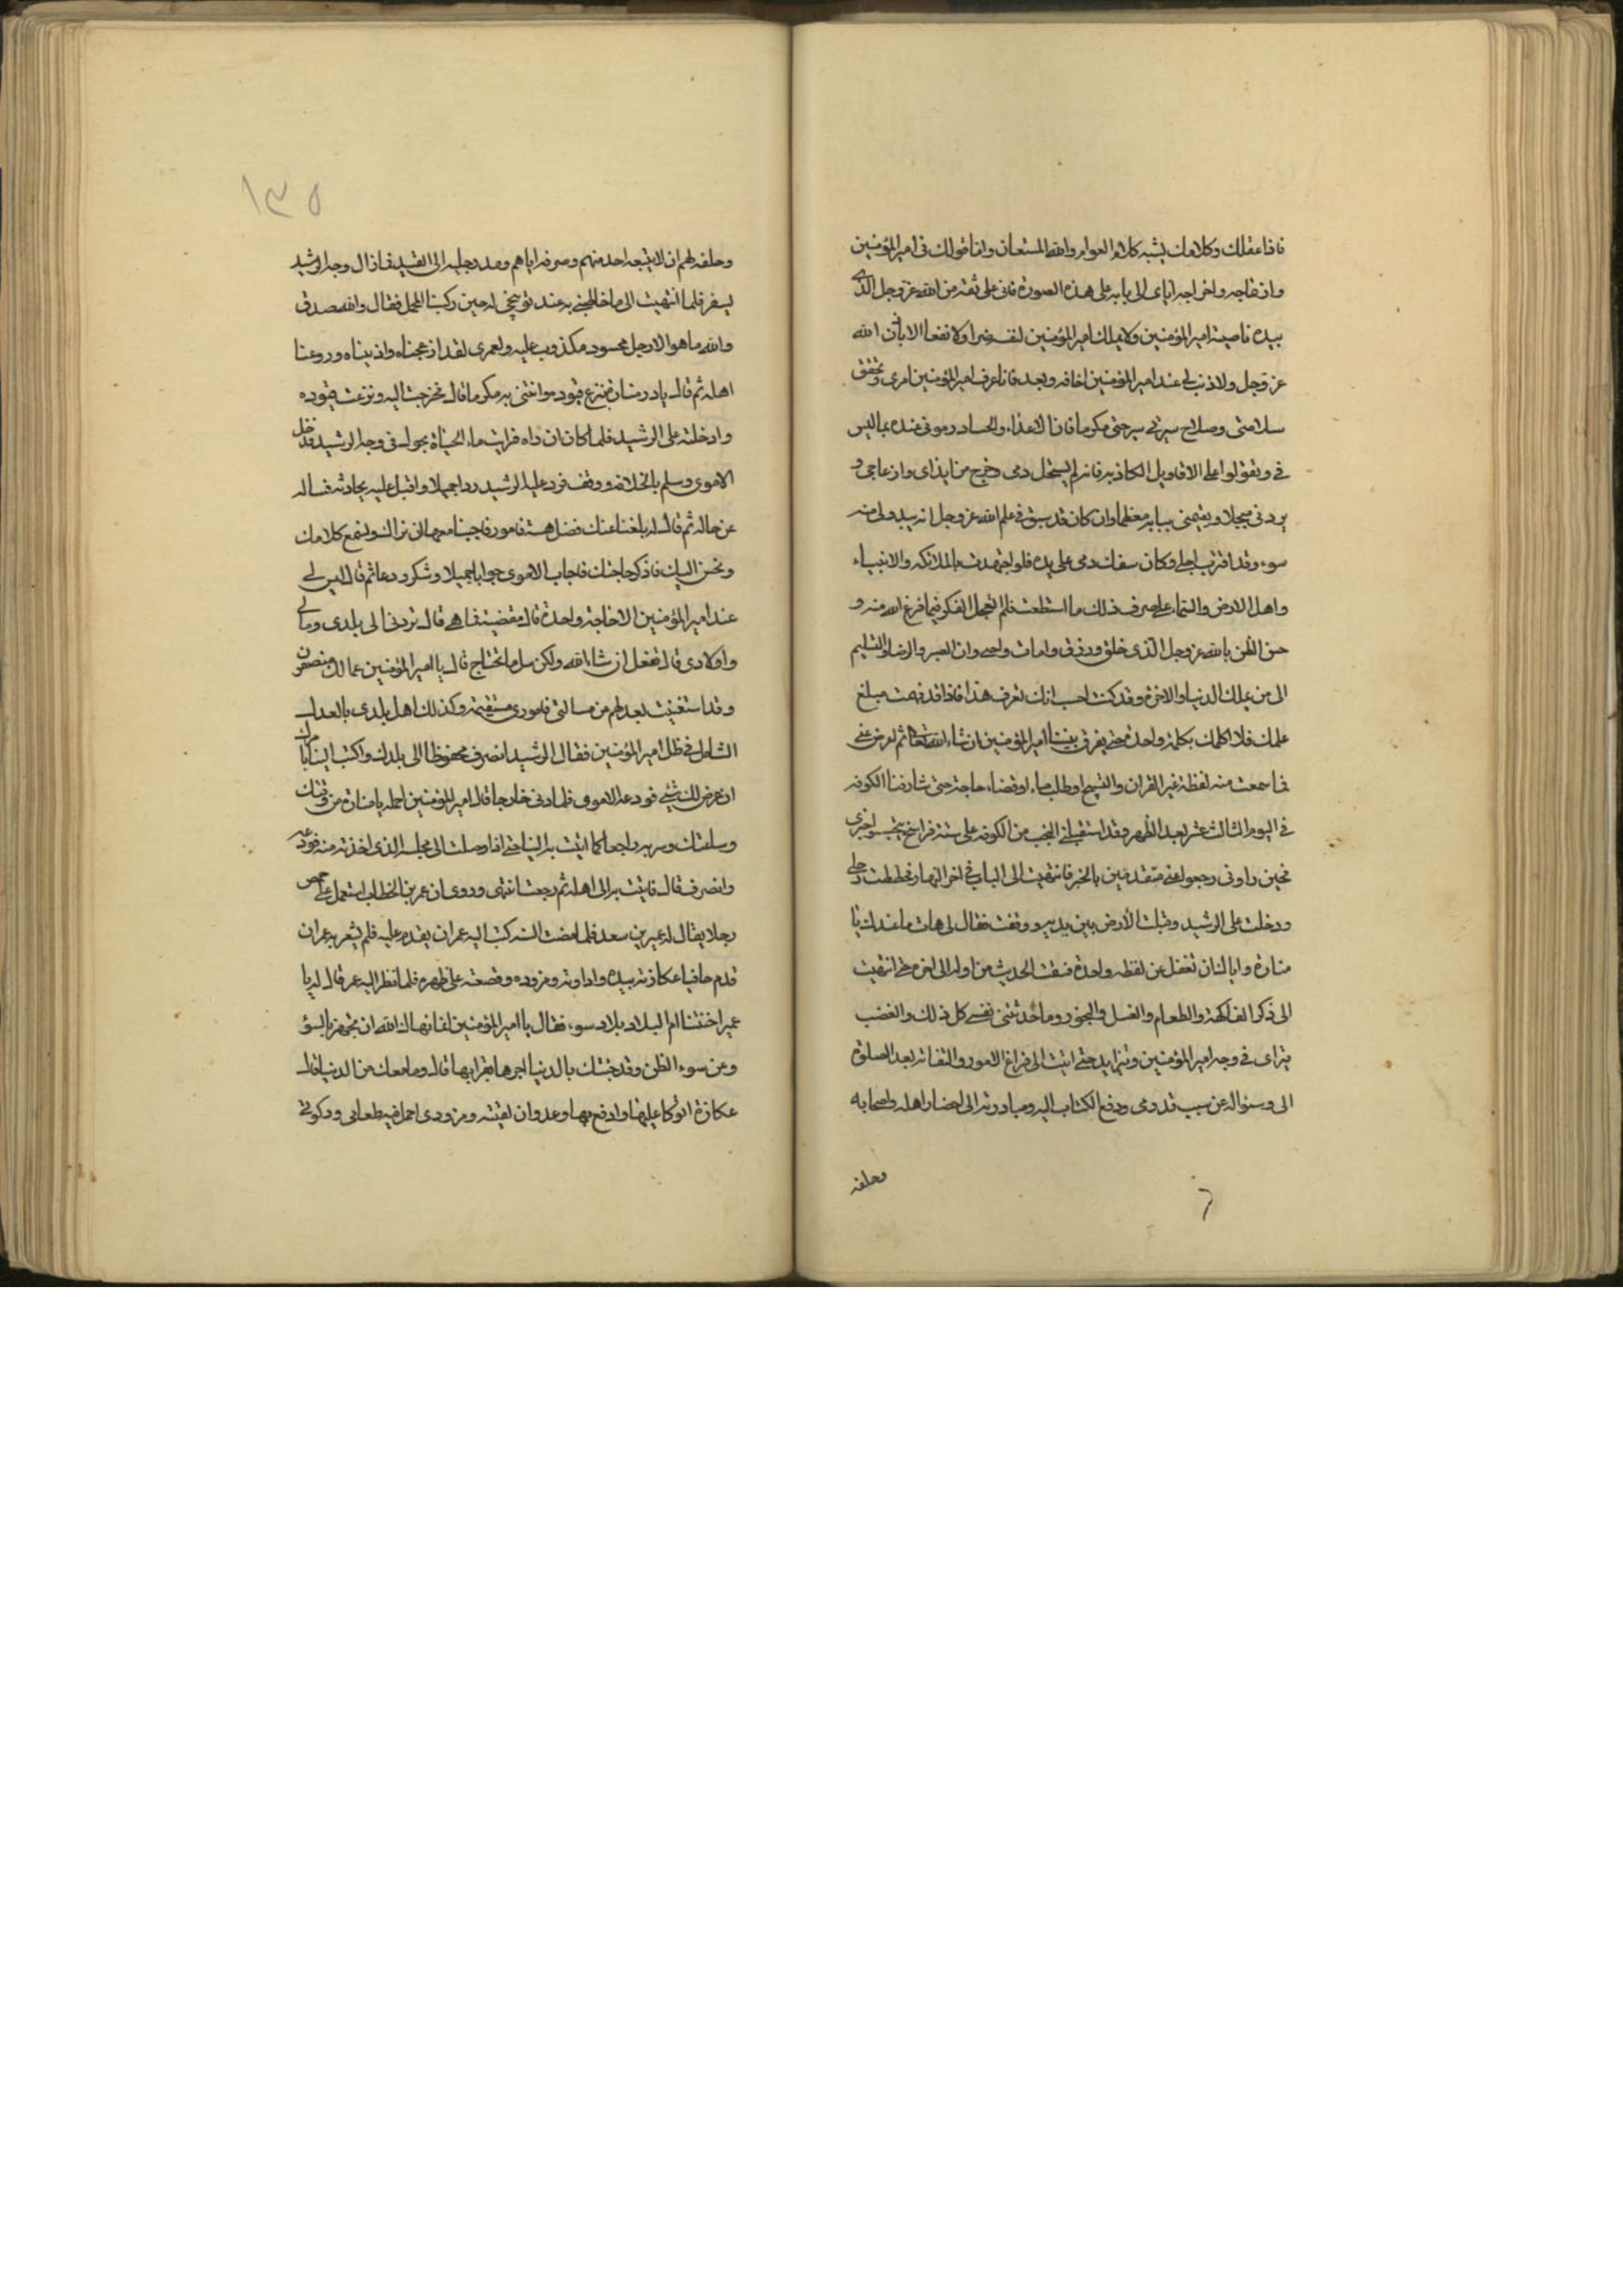 فاذا عقلك وكلامك يشبه كلام العوام والله المستعان واما قولك فى امير المؤمنين
وازعاجه واخراجه اياى الى بابه على هذه الصورة فانى على ثقة من الله عز وجل الذى
بيده ناصية امير المؤمنين ولا يملك امير المؤمنين لنفسه ضرا ولا نفعا الا باذن الله
عز وجل ولا ذنب لى عند امير المؤمنين اخافه وبعد فاذا عرف امير المؤمنين امرى وتحقق
سلامتى وصلاح سيرتى سرحنى مكرما فان الاعداء والحساد رمونى عنده بما ليس
فى وتقولوا على الاقاويل الكاذبة فانه لم يستحل دمى ويخرج من ايذاى وازعاجى و
يردنى مبجلا ويقيمنى ببابه معظما وان كان قد سبق فى علم الله عز وجل انه يبدو لى منه
سوء وقد اقترب اجلى وكان سفك دمى على يده فلو اجتهدت الملائكة والانبياء
واهل الارض والسماء على صرف ذلك ما استطعت فلم اتعجل الفكر فيما فرغ الله منه و
حسن الظن بالله عز وجل الذى خلق ورزق وامات واحيى وان الصبر والرضا والتسليم
الى من يملك الدنيا والاخرة وقد كنت احسب انك تعرف هذا فاذا قد فهمت مبلغ
علمك فلا اكلمك بكلمة واحدة حتى يفرق بيننا امير المؤمنين ان شاء الله تعالى ثم اعرض عنى
فما سمعت منه لفظة غير القران والتسبيح او طلب ماء او قضاء حاجة حتى شارفنا الكوفة
فى اليوم الثالث عشر بعد الظهر وقد استقبلنى النجب من الكوفة على ستة فراسخ يتجسسوا خبرى
فحين راونى رجعوا عنى متقدمين بالخبر فانتهيت الى الباب فى اخر النهار فحططت رحلى
ودخلت على الرشيد وقبلت الارض بين يديه ووقفت فقال لى هات ما عندك يا
منارة واياك ان تغفل عن لفظه واحدة فسقت الحديث من اوله الى اخره حتى انتهيت
الى ذكر الفاكهة والطعام والغسل والبخور وما حدثتنى نفسى كل ذلك والغضب
يتراى فى وجه امير المؤمنين ويتزايد حتى انتهيت الى فراغ الاموى والتفاته بعد الصلوة
الى وسؤاله عن سبب قدومى ودفع الكتاب اليه ومبادرته الى احضار اهله واصحابه
وحلفه
١٣٥
وحلفه لهم ان لا يتبعه احد منهم وصرفه اياهم ومد رجليه الى القيد فما زال وجه الرشيد
يسفر فلما انتهيت الى ما خاطبنى به عند توبيخى له حين ركبنا المحمل فقال والله صدق
والله ما هو الا رجل محسود مكذوب عليه ولعمرى لقد ازعجناه واذيناه وروعنا
اهله ثم قال يا منارة انزع قيوده وائتنى به مكرما قال فخرجت اليه ونزعت قيوده
وادخلته على الرشيد فلما كان ان راه فرايت ماء الحياة يجول فى وجه الرشيد فدخل
الاموى وسلم بالخلافة ووقف فرد عليه الرشيد ردا جميلا واقبل عليه يحادثه فساله
عن حاله ثم قال له بلغنا عنك فضل هيئة وامور فاحببنا معها ان نراك ونسمع كلامك
ونحسن اليك فاذكر حاجتك فاجاب الاموى جوابا جميلا وشكر ودعا ثم قال ليس لى
عند امير المؤمنين الا حاجة واحدة قال مقضية فما هى قال تردنى الى بلدى ومالى
واولادى قال نفعل ان شاء الله ولكن سل ما تحتاج قال يا امير المؤمنين عمالك منصفون
وقد استغنيت بعدلهم عن مسالتى فامورى مستقيمة وكذلك اهل بلدى بالعدل
الشامل فى ظل امير المؤمنين فقال الرشيد انصرف محفوظا الى بلدك واكتب الينا بامرك
ان عرض لك شئ فودعه الاموى فلما ولى خارجا قال امير المؤمنين احمله يا منارة من وقتك
وساعتك وسر به راجعا كما اتيت به الينا حتى اذا وصلت الى مجلسه الذى اخذته منه فودعه
وانصرف قال فاتيت به الى اهله ثم رجعت انتهى وروى ان عمر بن الخطاب استعمل على حمص
رجلا يقال له عمير بن سعد فلما مضت السنة كتب اليه عمر ان يقدم عليه فلم يشعر به عمر ان
قدم حافيا عكازته بيده واداوته ومزوده وقصعته على ظهره فلما نظر اليه عمر قال له يا
عمير اخنتنا ام البلاد بلاد سوء فقال يا امير المؤمنين اما نهاك الله ان تجهر بالسؤ
وعن سوء الظن وقد جئتك بالدنيا اجرها بقرابها قال وما معك من الدنيا قال
عكازة اتوكا عليها وادفع بها عدوا ان لقيته ومزودى احمل فيه طعامى وركوتى